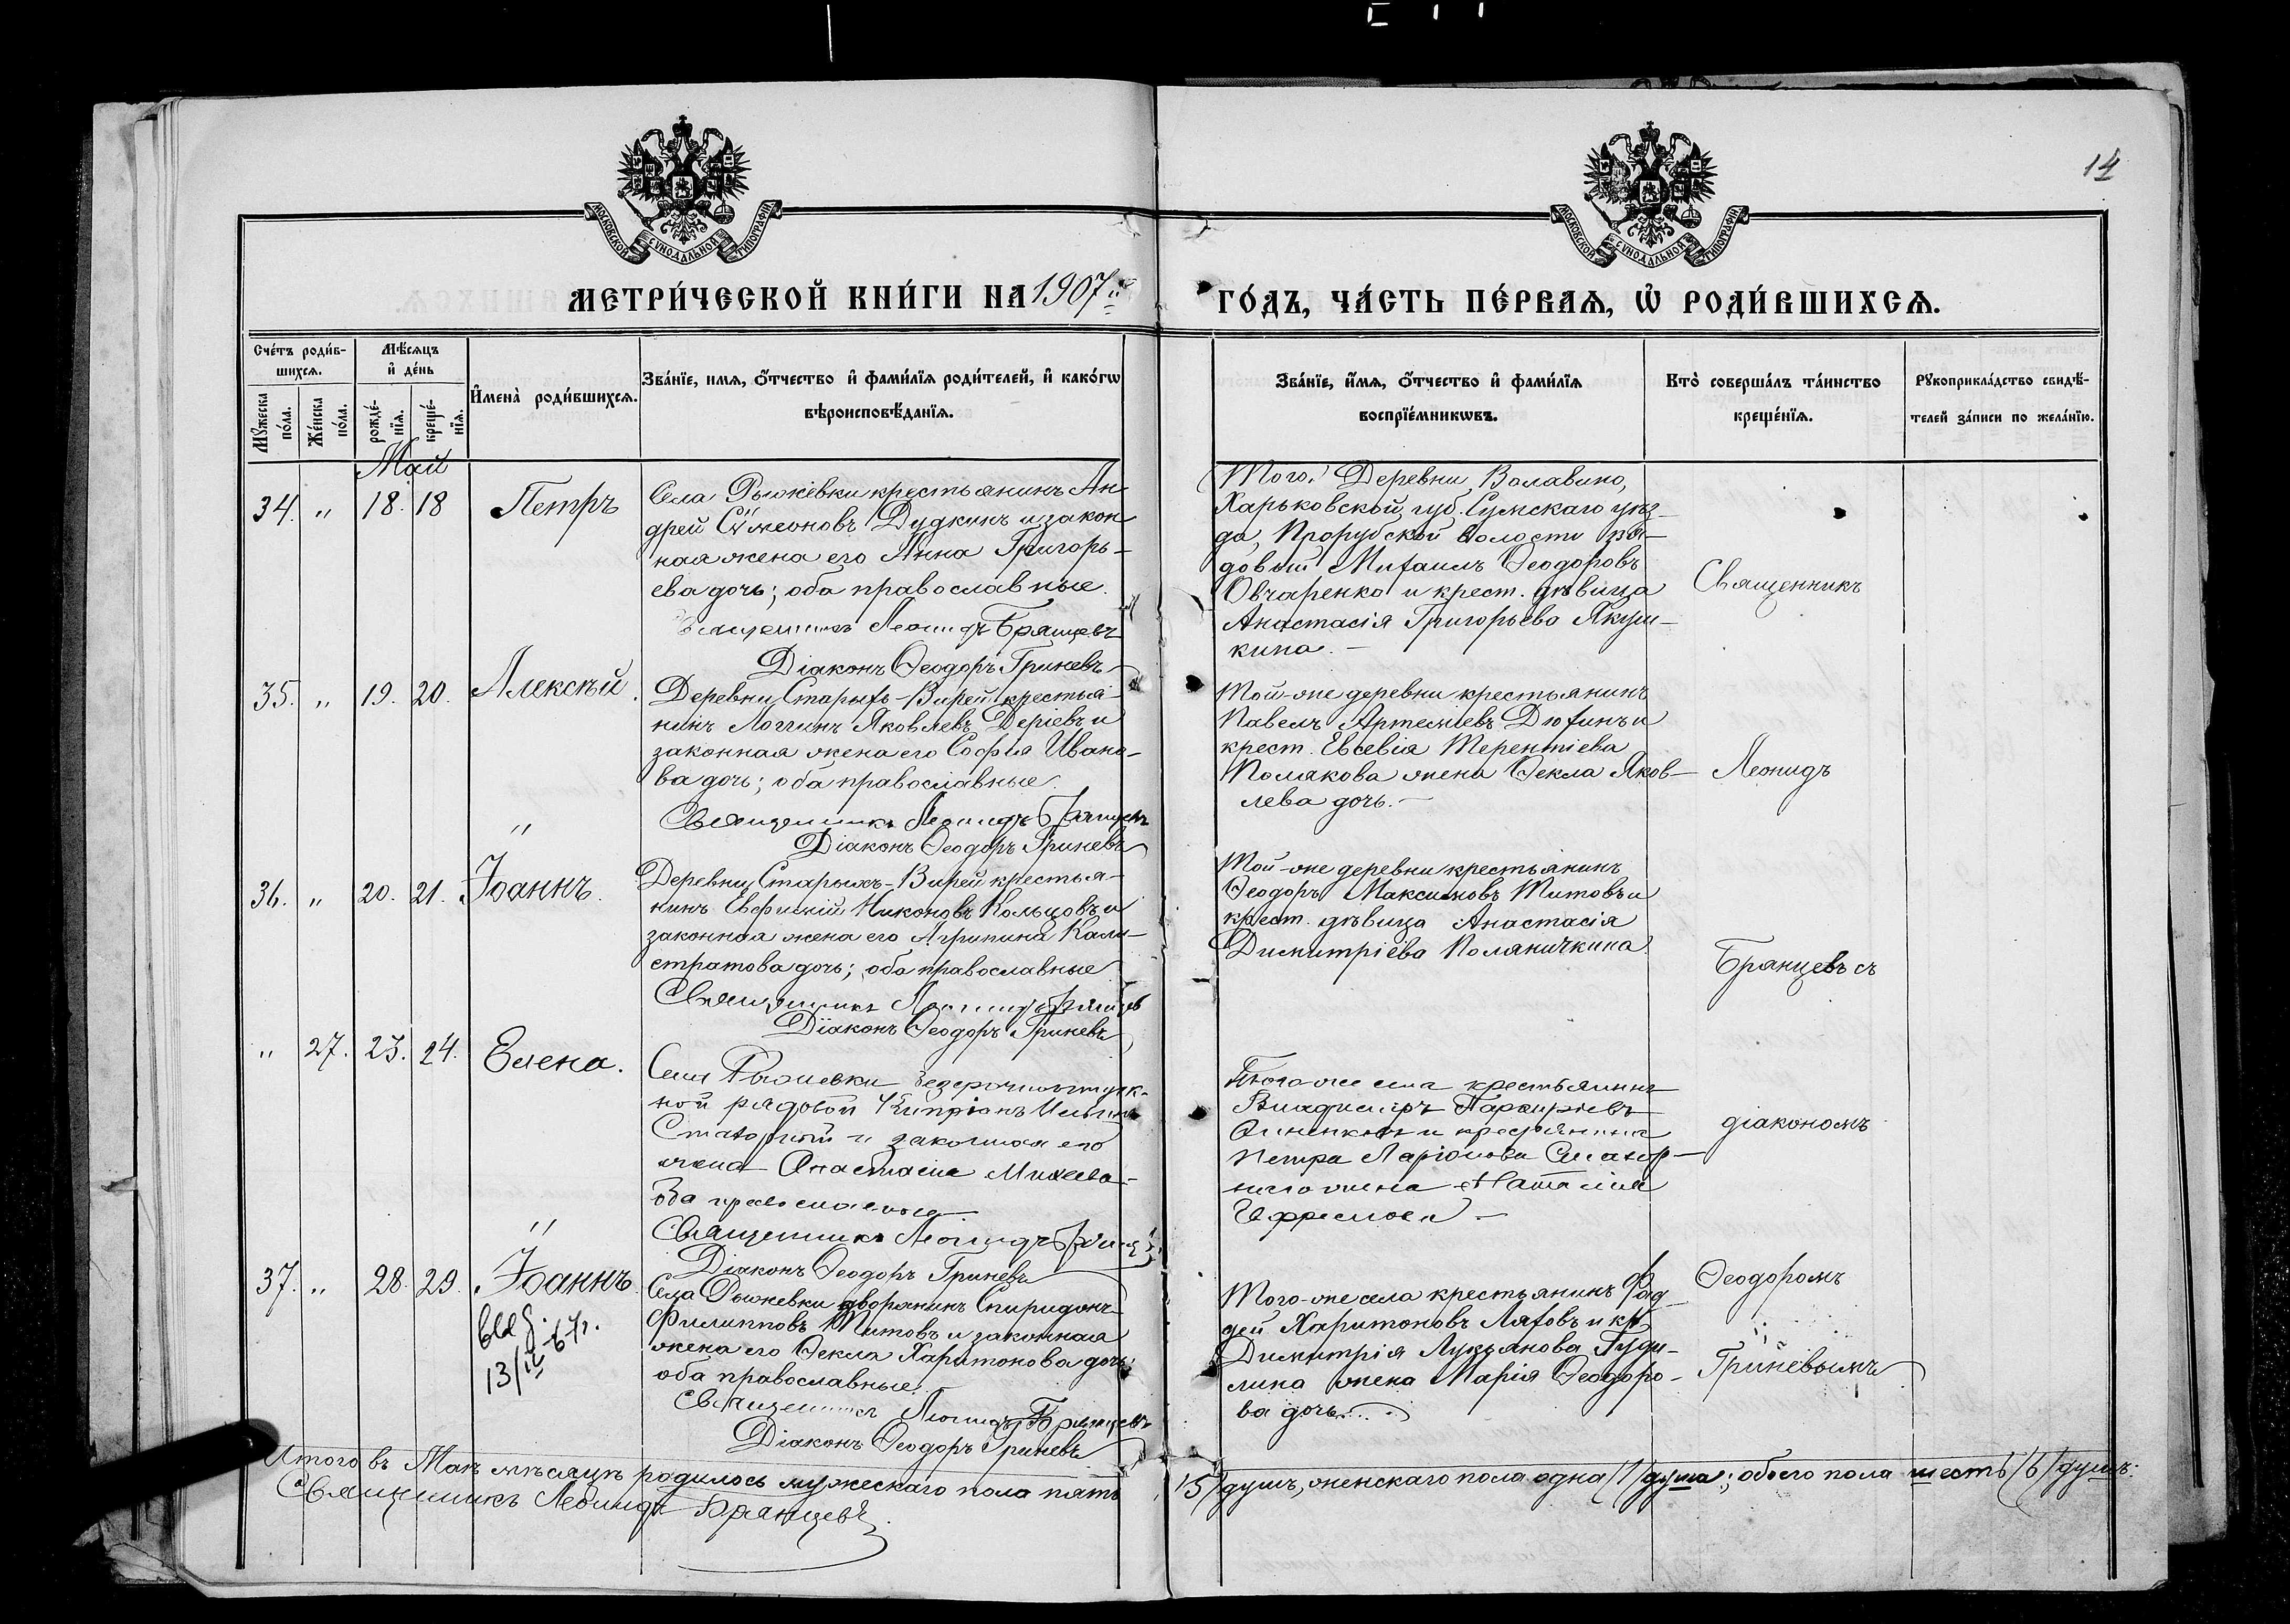 14
МОСКОВСКОЙ СѴНОДАЛЬНОЙ ТИПОГРАФІИ
МОСКОВСКОЙ СѴНОДАЛЬНОЙ ТИПОГРАФІИ
МЕТРИ́ЧЕСКОЙ КНИ́ГИ НА 1907й
ГО́ДЪ, ЧА́СТЬ ПЕ́РВАѦ, Ѡ҆ РОДИ́ВШИХСѦ.
Сче́тъ роди́в-
шихсѧ.
Мꙋжеска по́ла.
Же́нска по́ла.
Мѣ́сѧцъ
и҆ де́нь
рожде́-
нїѧ.
креще́-
нїѧ.
И҆мена̀ роди́вшихсѧ.
Зва́нїе, имѧ, ѻ҆́тчество и҆ фами́лїѧ роди́телей, и҆ како́гѡ
вѣроисповѣ́данїѧ.
Зва́нїе, и҆́мѧ, ѻ҆́тчество и҆ фами́лїѧ
воспрїе́мникѡвъ.
Кто̀ соверша́лъ та́инство
креще́нїѧ.
Рꙋкоприкла́дство свидѣ́-
телей за́писи по жела́нїю.
Май
34. " 18. 18 Петръ
Села Рыжевки крестьянинъ Ан-
дрей Сѵмеоновъ Дудкинъ и закон
ная жена его Анна Григорь-
ева дочь; оба православные.
Священникъ Леонидъ Брянцевъ
Діаконъ Ѳеодоръ Гриневъ
Деревни Волавино,
Харьковской губ. Сумскаго уѣз-
да, Прорубской волости
Михаилъ Ѳеодоровъ
Овчаренко и крест. дѣвица
Анастасія Григорьева Якуш-
кина. -
35. " 19. 20. Алексѣй.
Деревни Старыхъ-Вирей крестья-
нинъ Логгинъ Яковлевъ Деріевъ и
законная жена его Софія Ивано-
ва дочь; оба православные.
Священникъ Леонидъ Брянцевъ
Діаконъ Ѳеодоръ Гриневъ
Той-же деревни крестьянинъ
Павелъ Артеміевъ Дюкинъ и
крест. Евсевія Терентіева
Полякова жена Ѳекла Яков-
лева дочь. -
"
36. " 20. 21. Іоаннъ.
Деревни Старыхъ-Вирей крестья-
нинъ Евфимій Никоновъ Кольцовъ и
законная жена его Агрипина Кали-
стратова дочь; оба православные
Священникъ Леонидъ Брянцев
Діаконъ Ѳеодоръ Гриневъ
Той-же деревни крестьянинъ
Ѳеодоръ Максимовъ Титовъ и
крест. дѣвица Анастасія
Димитріева Поляничкина.
" 27. 23. 24. Елена.
Села Рыжевки
ной рядовой Кипріанъ Ильинъ
и законная его
жена Анастасія Михеева -
оба православные
Священникъ Леонидъ
Діаконъ Ѳеодоръ Гриневъ
Того же села крестьянинъ
Владиміръ Порфиріевъ
и крестьянина
Петра Ларіонова
жена Наталія
Ефремова -
"
37. " 28. 29. Іоаннъ.
13/IV 67г.
Села Рыжевки дворянинъ Спиридонъ
Филипповъ Титовъ и законная
жена его Ѳекла Харитонова дочь;
оба православные.
Священникъ Леонидъ Брянцевъ
Діаконъ Ѳеодоръ Гриневъ
Того-же села крестьянинъ Фад-
дей Харитоновъ Ляховъ и кр.
Димитрія Лукьянова Гуди-
лина жена Марія Ѳеодоро-
ва дочь.
Священникъ
Леонидъ
Брянцевъ съ
діакономъ
Ѳеодоромъ
Гриневымъ
Итого въ Маѣ мѣсяцѣ родилось мужескаго пола пять /5/ душъ, женскаго пола одна /1/ душа; обоего пола шесть /6/ душъ.
Священникъ Леонидъ Брянцевъ